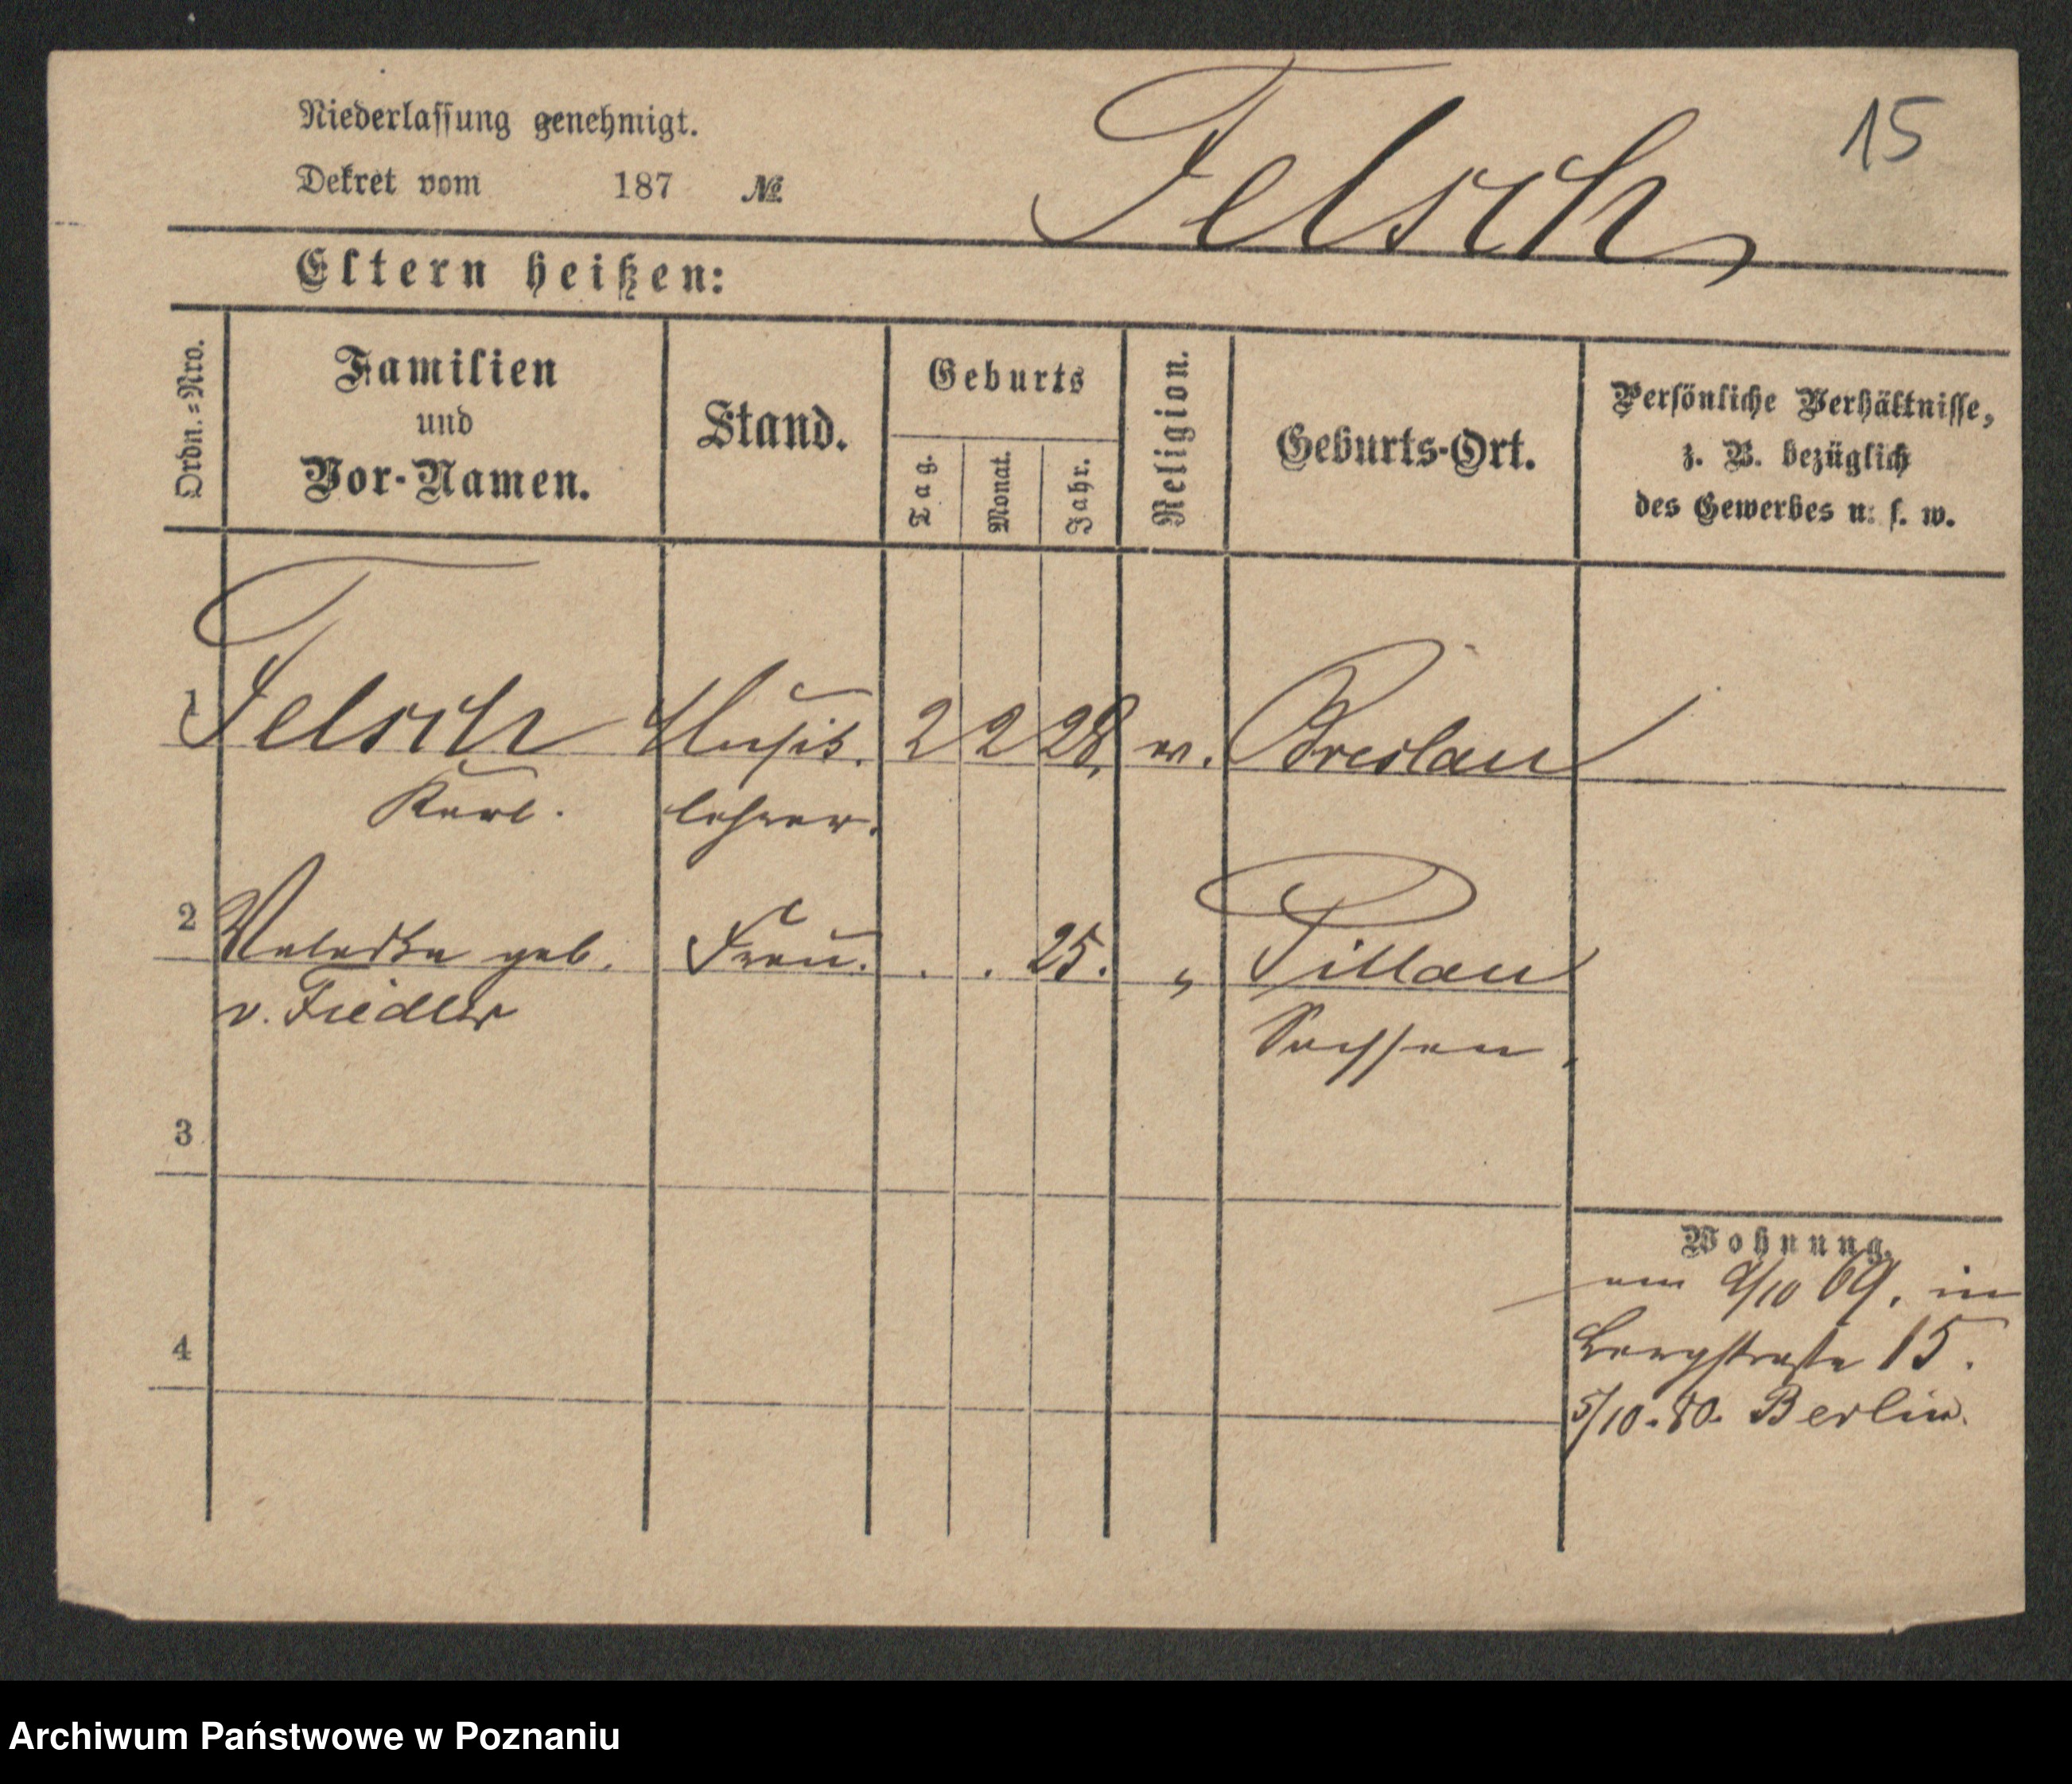 Niederlassung genehmigt.
Dekret vom 187 №
Felsch
15
Eltern heißen:
Ordn.=Nro.
Familien
und
Vor-Namen.
Stand.
Geburts
Tag.
Monat.
Jahr.
Religion.
Geburts-Ort.
Persönliche Verhältnisse,
z. B. bezüglich
des Gewerbes u. s. w.
1 Felsch Musik. 2 2 28. Breslau
Karl. lehrer.
2 Valeska geb. Frau. . . 25. " Pillau
v. Fiedler Sachsen.
3
Wohnung.
am 9/10 69. in
4 Bergstraße 15.
5/10.80. Berlin.
Archiwum Państwowe w Poznaniu